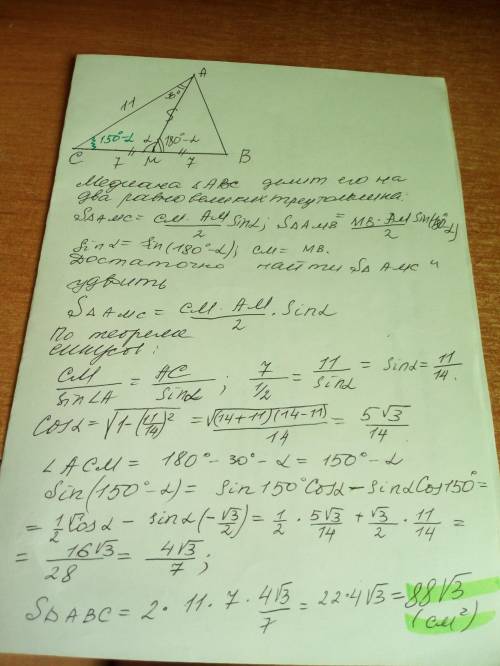 A
11
30°
C
150°-α
α
180°-α
7
M
7
B
Медиана ΔABC делит его на
два равновеликих треугольника:
SΔAMC = CM·AM/2 sinα; SΔAMB = MB·AM/2 sin(180°-α)
sinα = sin(180°-α); CM = MB.
Достаточно найти SΔAMC и
удвоить
SΔAMC = CM·AM/2 · sinα
По теореме
синусов:
CM/sin∠A = AC/sinα ; 7/1/2 = 11/sinα = sinα = 11/14.
Cosα = √(1-(11/14)²) = √((14+11)(14-11))/14 = 5√3/14
∠ACM = 180°-30°-α = 150°-α
Sin(150°-α) = Sin150°Cosα - SinαCos150° =
= 1/2 Cosα - sinα(-√3/2) = 1/2 · 5√3/14 + √3/2 · 11/14 =
= 16√3/28 = 4√3/7 ;
SΔABC = 2·11·7·4√3/7 = 22·4√3 = 88√3
(см²)